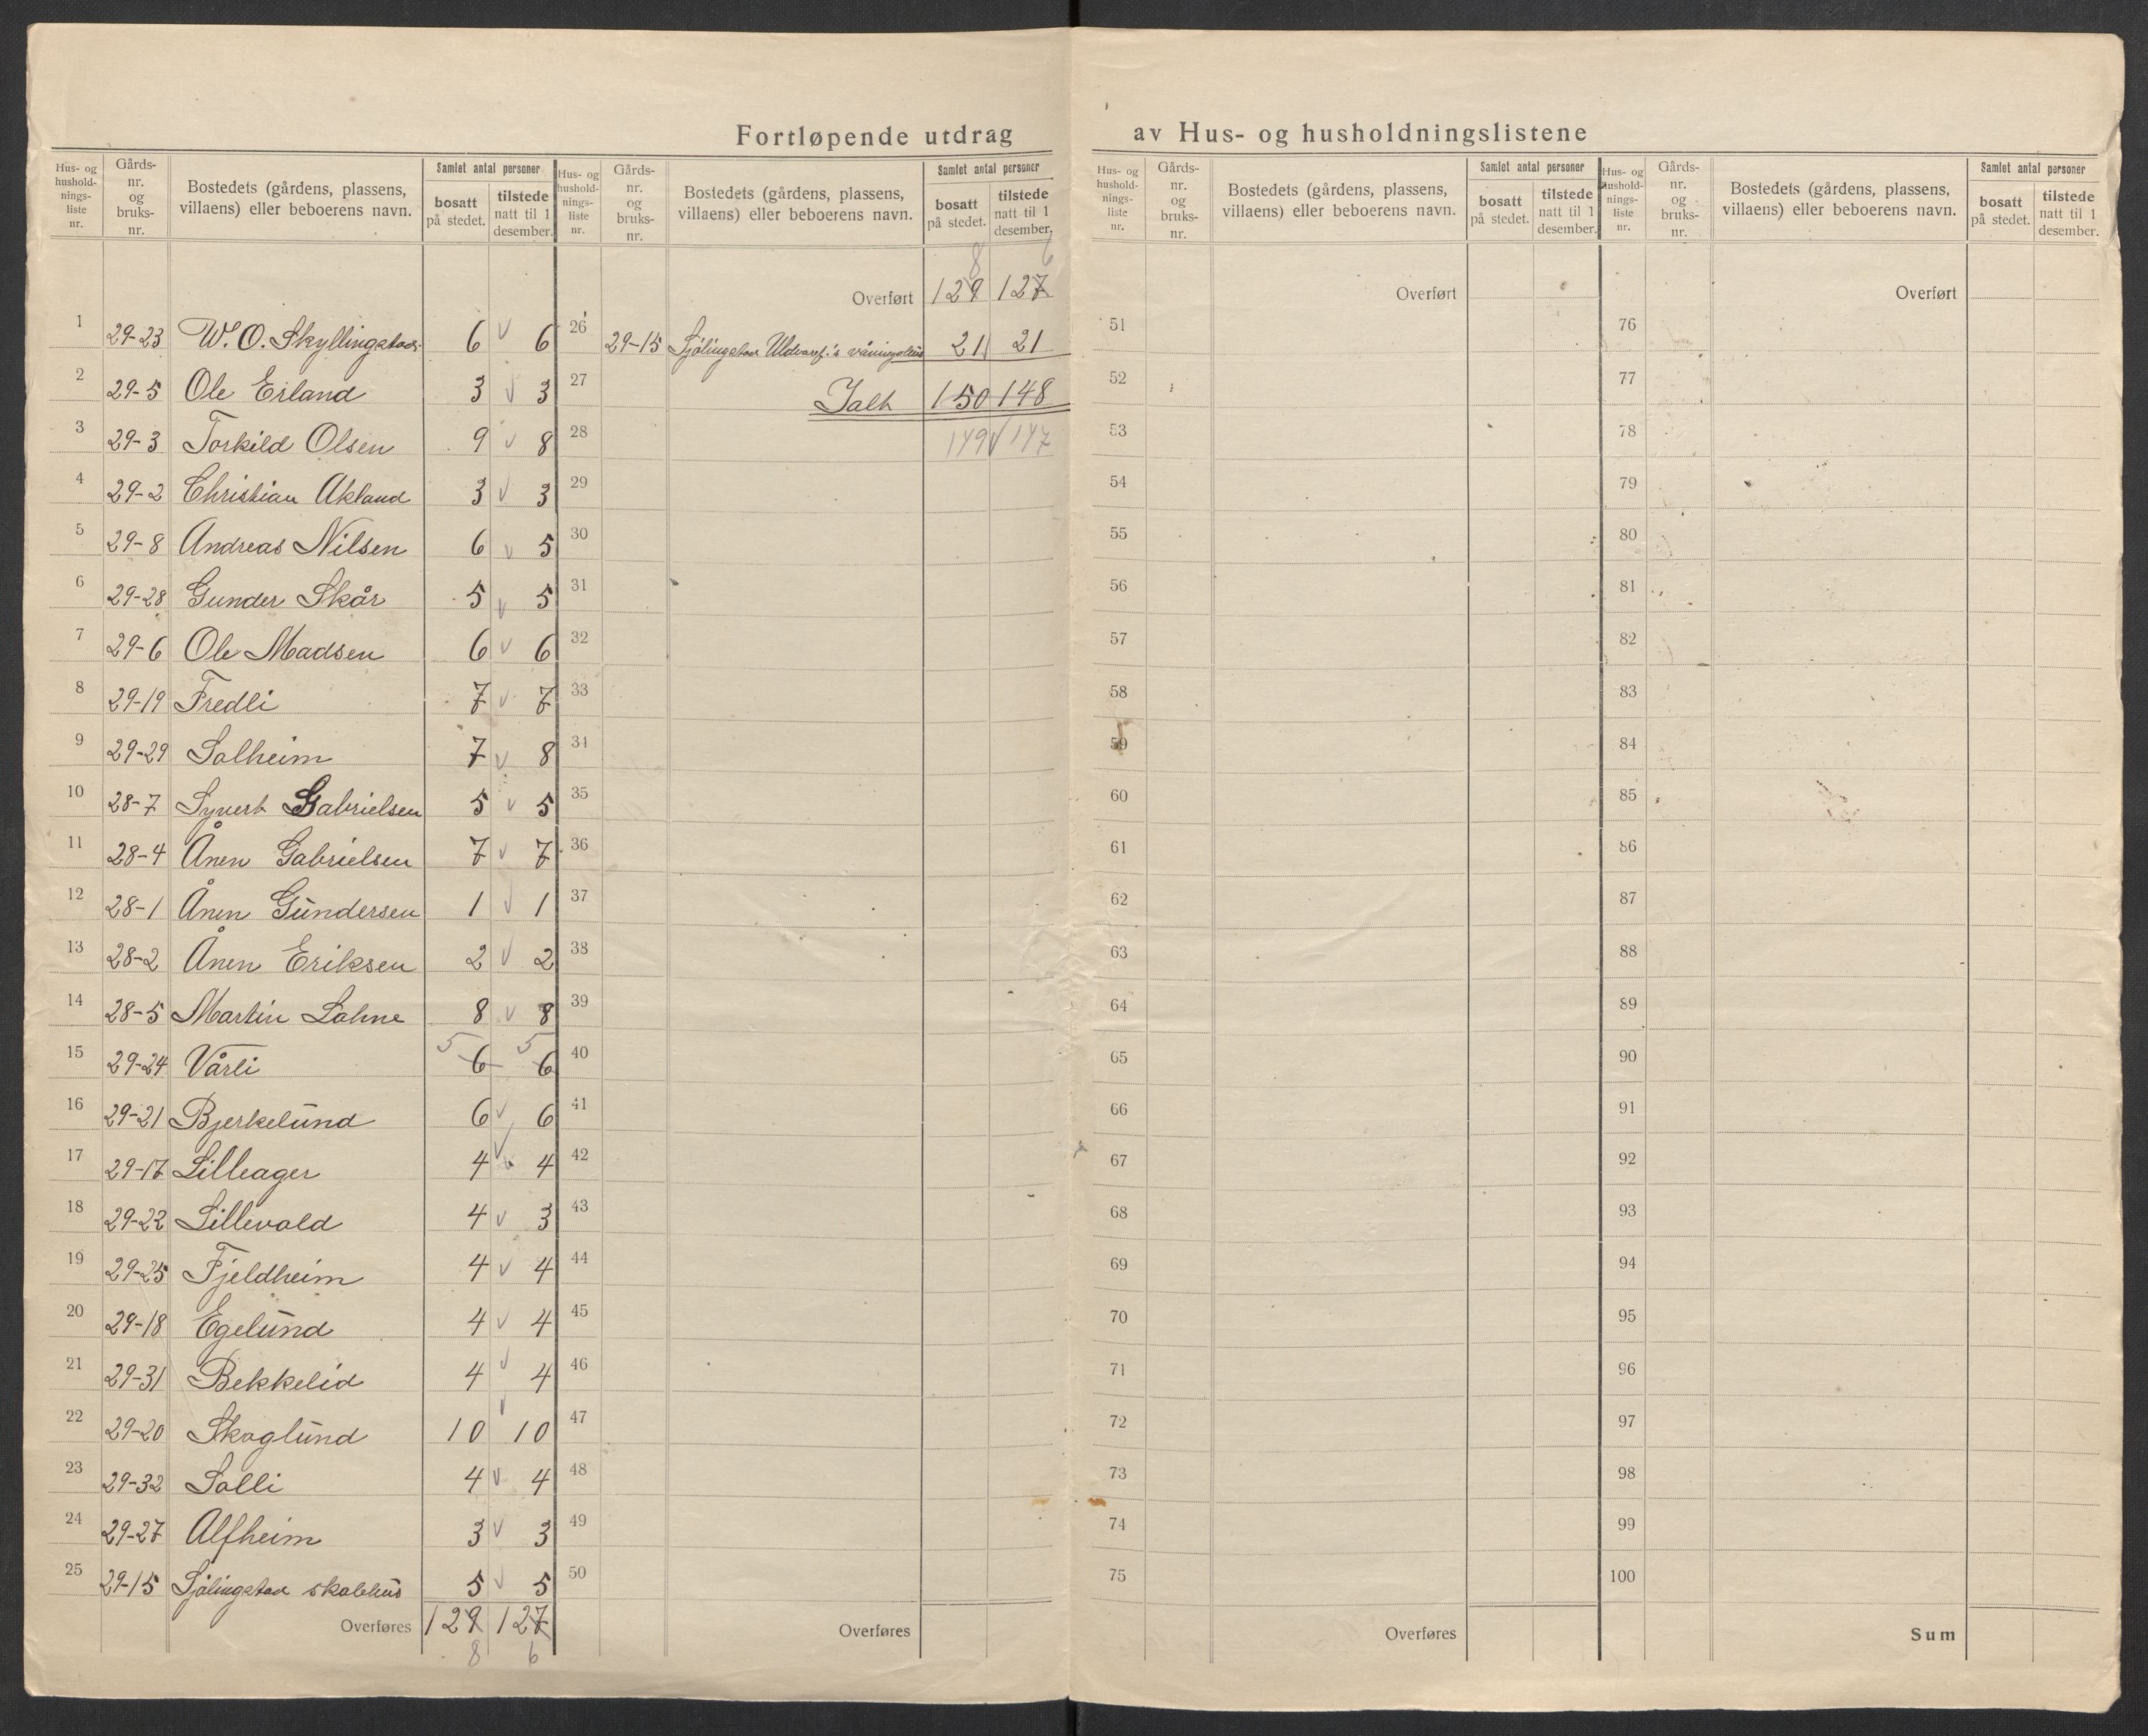 Fortløpende utdrag av Hus- og husholdningslistene
Hus- og hushold-nings-liste nr. | Gårds-nr. og bruks-nr. | Bostedets (gårdens, plassens, villaens) eller beboerens navn. | Samlet antal personer | bosatt på stedet. | tilstede natt til 1 desember.
1 29-23 W. O. Skyllingstad 6 v 6
2 29-5 Ole Eiland 3 v 3
3 29-3 Torkild Olsen 9 v 8
4 29-2 Christian Akland 3 v 3
5 29-8 Andreas Nilsen 6 v 5
6 29-28 Gunder Skår 5 v 5
7 29-6 Ole Madsen 6 v 6
8 29-19 Fredli 7 v 7
9 29-29 Solheim 7 v 8
10 28-7 Syvert Gabrielsen 5 v 5
11 28-4 Ånen Gabrielsen 7 v 7
12 28-1 Ånen Gundersen 1 v 1
13 28-2 Ånen Eriksen 2 v 2
14 28-5 Martin Lohne 8 v 8
15 29-24 Vårli 5 6 5 6
16 29-21 Bjerkelund 6 v 6
17 29-17 Lilleager 4 v 4
18 29-22 Lillevold 4 v 3
19 29-25 Fjeldheim 4 v 4
20 29-18 Egelund 4 v 4
21 29-31 Bekkelid 4 v 4
22 29-20 Skoglund 10 v 10
23 29-32 Solli 4 v 4
24 29-27 Alfheim 3 v 3
25 29-15 Sjølingstad skolehus 5 v 5
Overføres 129 127
8 6
Hus- og hushold-nings-liste nr. | Gårds-nr. og bruks-nr. | Bostedets (gårdens, plassens, villaens) eller beboerens navn. | Samlet antal personer | bosatt på stedet. | tilstede natt til 1 desember.
8 6
Overført 129 127
26 29-15 Sjølingstad Uldvaref.'s våningshus 21 21
27 Ialt 150 148
28 149 v 147
29
30
31
32
33
34
35
36
37
38
39
40
41
42
43
44
45
46
47
48
49
50
Overføres
Hus- og hushold-nings-liste nr. | Gårds-nr. og bruks-nr. | Bostedets (gårdens, plassens, villaens) eller beboerens navn. | Samlet antal personer | bosatt på stedet. | tilstede natt til 1 desember.
Overført
51
52
53
54
55
56
57
58
59
60
61
62
63
64
65
66
67
68
69
70
71
72
73
74
75
Overføres
Hus- og hushold-nings-liste nr. | Gårds-nr. og bruks-nr. | Bostedets (gårdens, plassens, villaens) eller beboerens navn. | Samlet antal personer | bosatt på stedet. | tilstede natt til 1 desember.
Overført
76
77
78
79
80
81
82
83
84
85
86
87
88
89
90
91
92
93
94
95
96
97
98
99
100
Sum